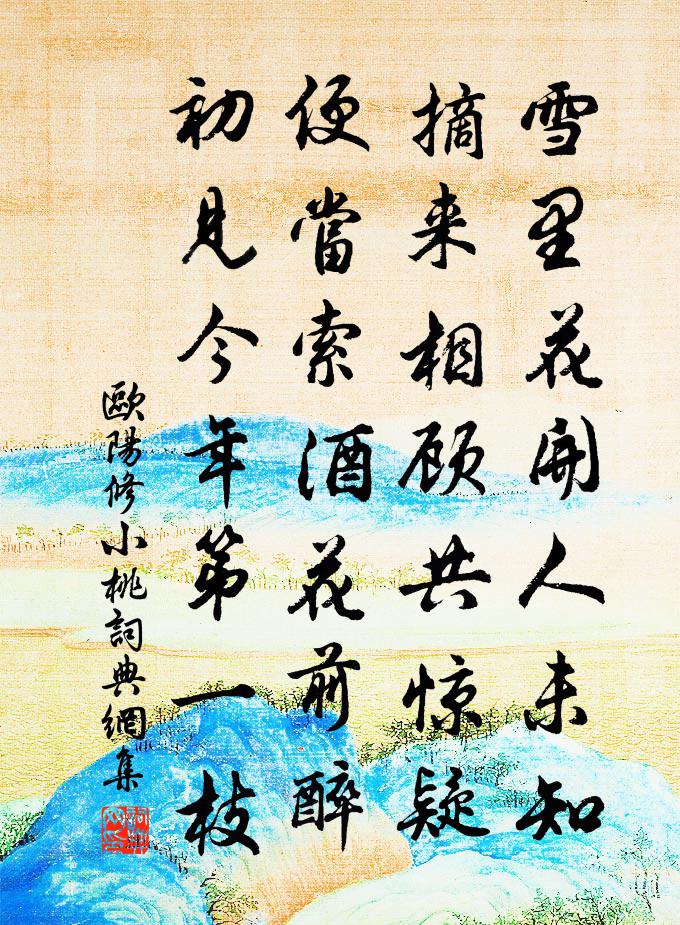 雪里花開人未知
摘来相顾共惊疑
便當索酒花前醉
初見今年第一枝
歐陽修小桃詞典網集